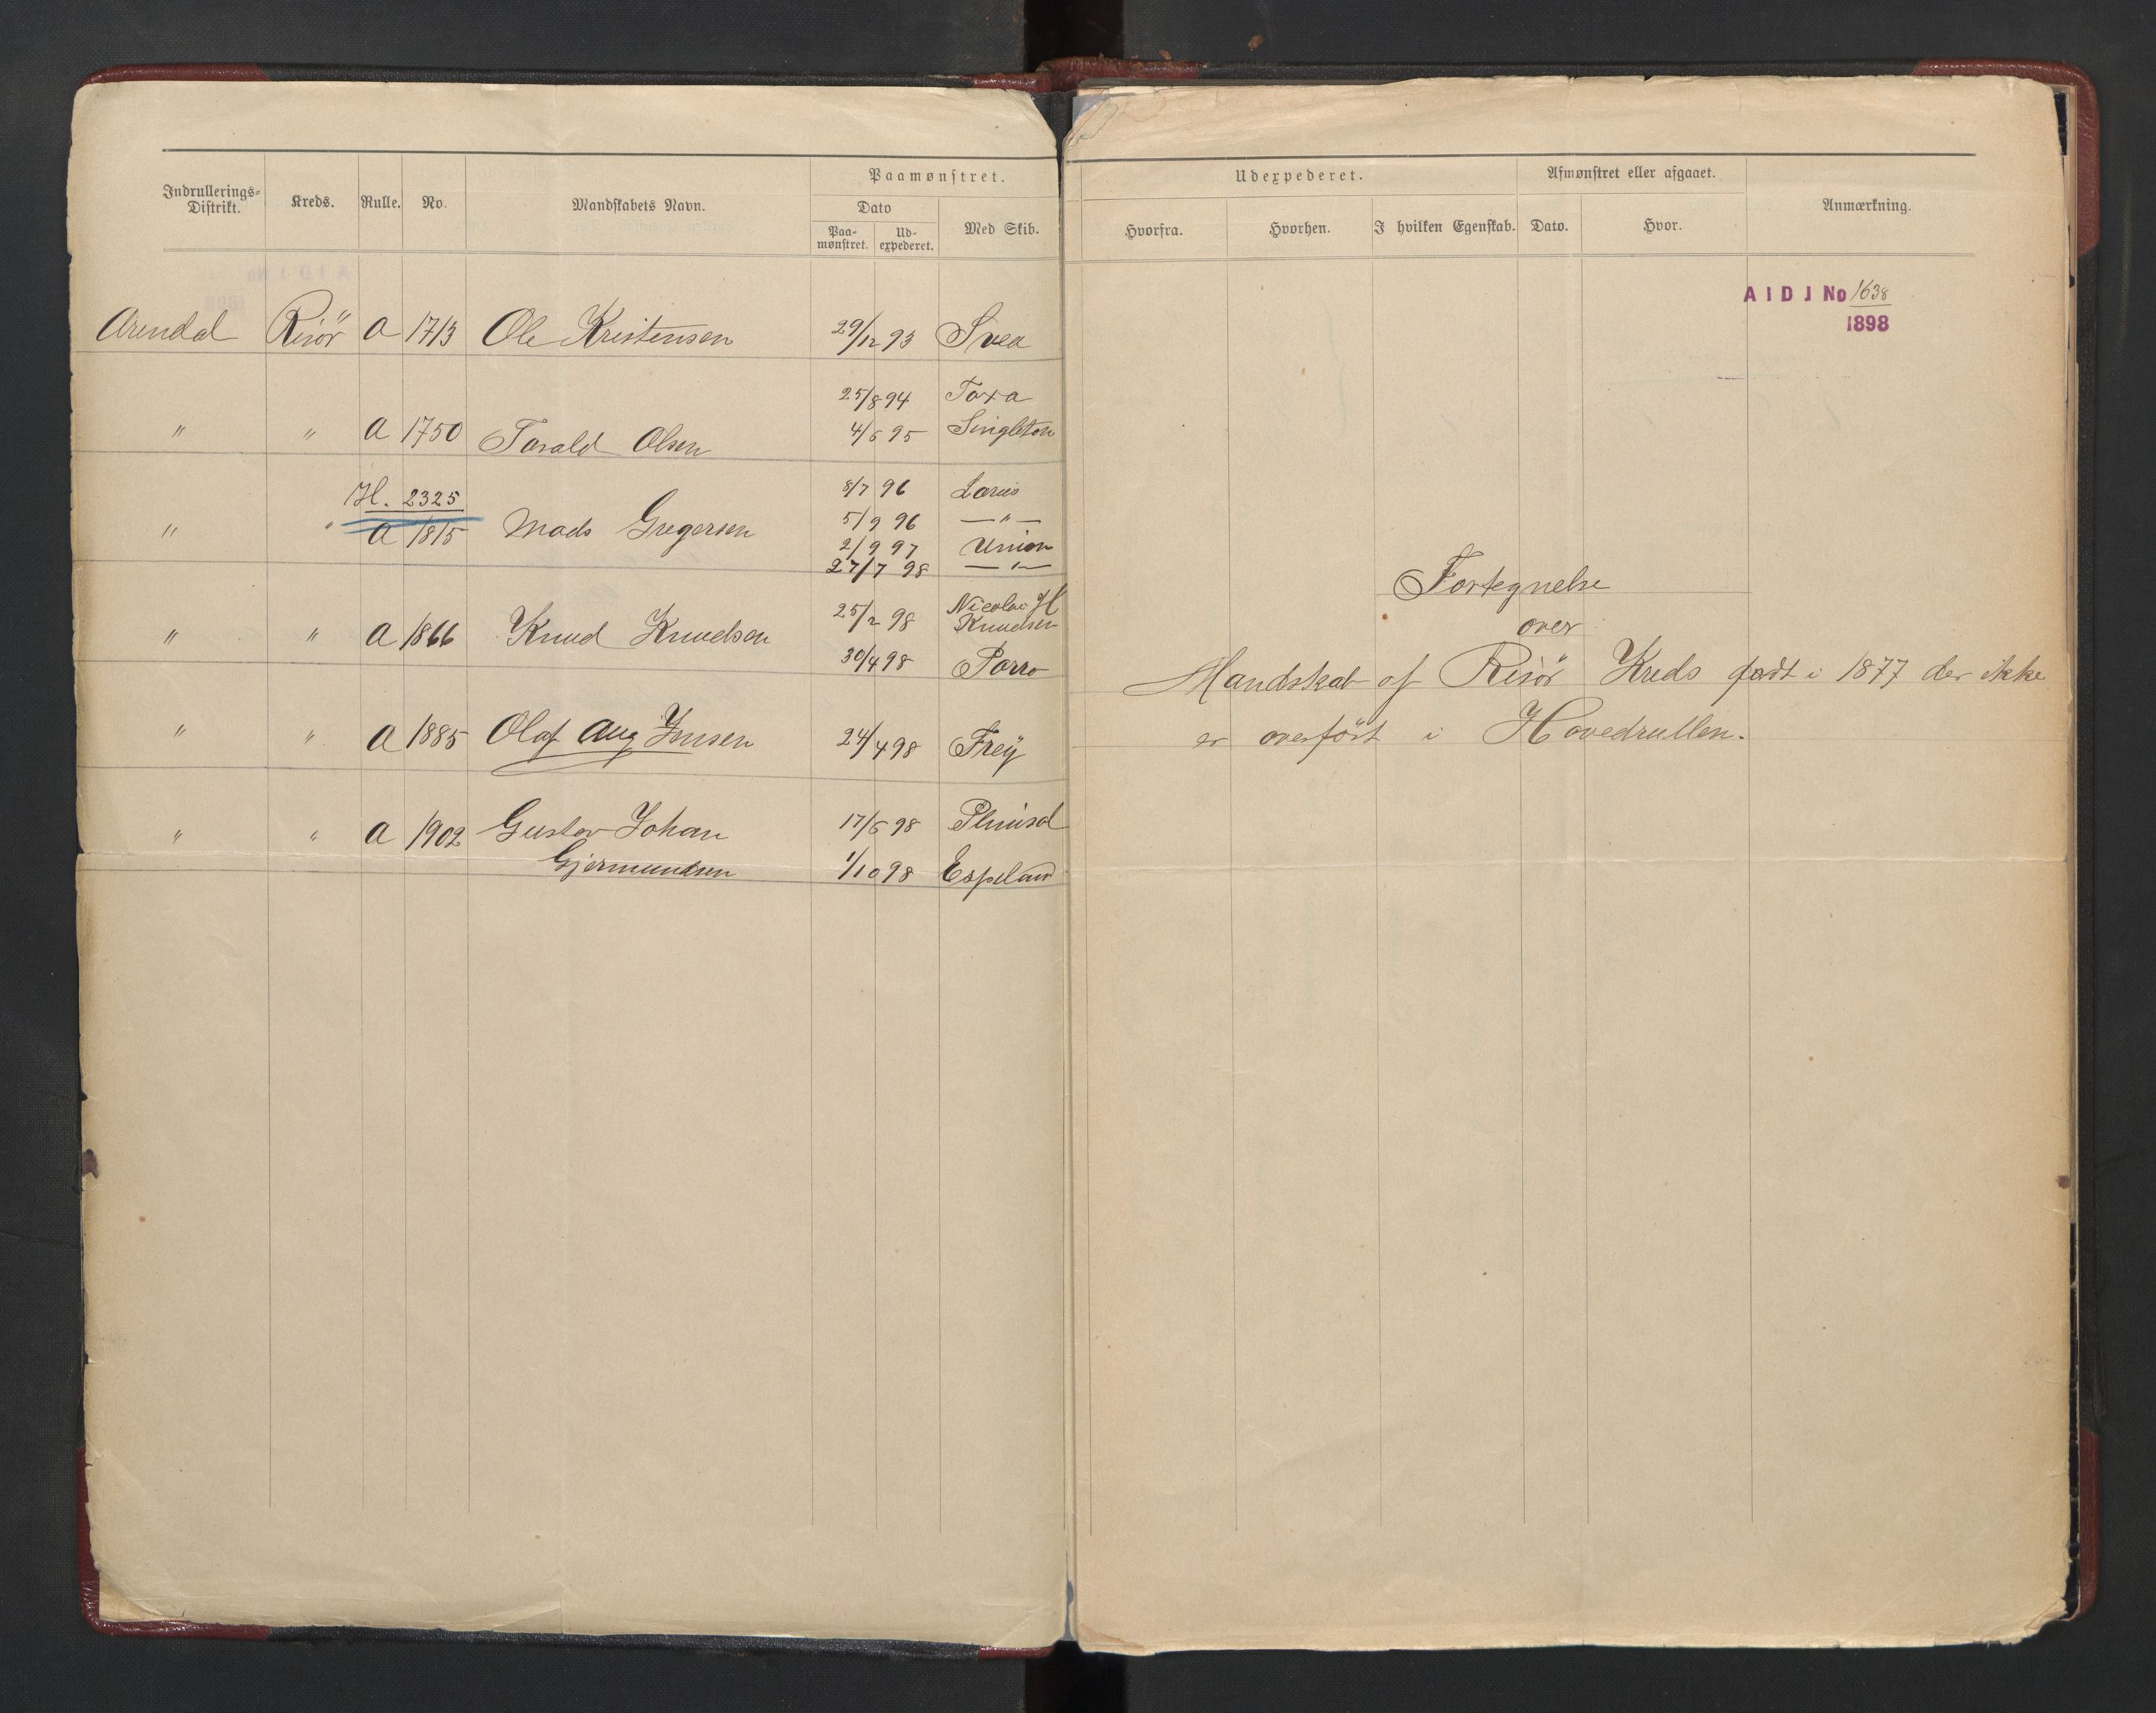 Indrullerings-Distrikt. Kreds. Rulle. No. Mandskabets Navn. Paamønstret.
Dato Med Skib.
Paa-mønstret. Ud-expederet.
Arendal Risör a 1713 Ole Kristensen 29/12 93 Svea
25/8 94 Toxa
" " a 1750 Tarald Olsen 4/5 95 Singleton
H. 2325 8/7 96 Larus
" " a 1815 Mads Gregersen 5/9 96 — " —
2/9 97 Union
27/7 98 — " —
25/2 98 Nicolai H
" " a 1866 Knud Knudsen Knudsen
30/4 98 Porro
" " a 1885 Olaf Aug Jensen 24/4 98 Frey
" " a 1902 Gustav Johan 17/5 98
Gjermundsen 1/10 98 Espeland
Udexpederet. Afmønstret eller afgaaet. Anmærkning.
Hvorfra. Hvorhen. I hvilken Egenskab. Dato. Hvor.
A I D J No 1638
1898
Fortegnelse
over
Mandskab af Risör Kreds født i 1877 der ikke
er overfört i Hovedrullen.